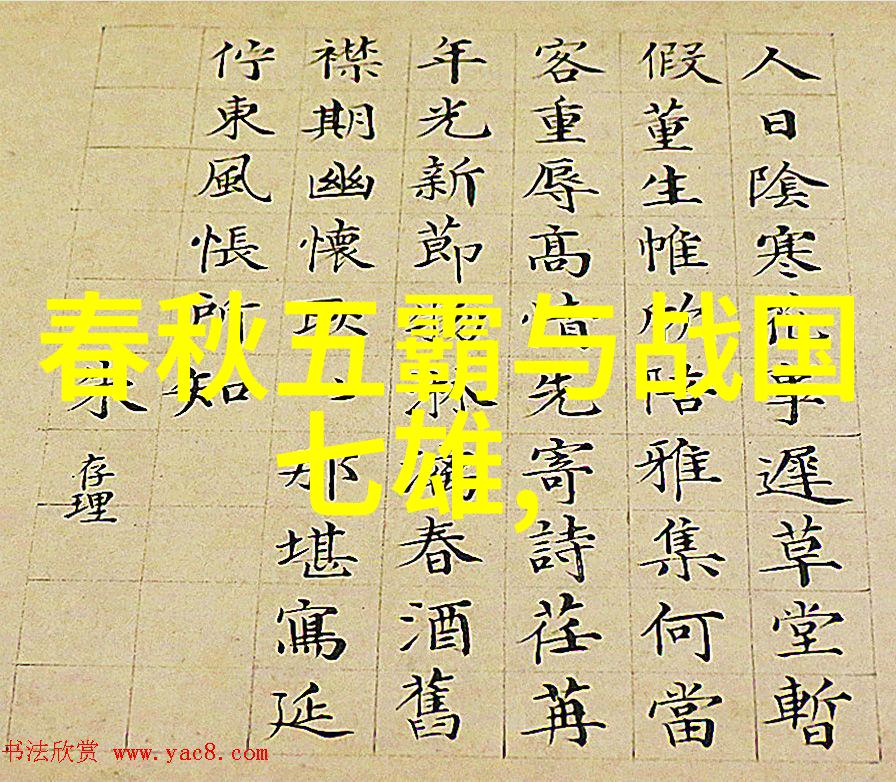 春秋五霸与战国
七雄,
人日陰寒花事遲草堂暫
假董生帷欣陪雅集何當
客重辱高情先寄詩荏苒
年光新節物春酒舊
襟期幽懷耿那堪寫延
佇東風悵所知
存理
书法欣赏 www.yac8.com